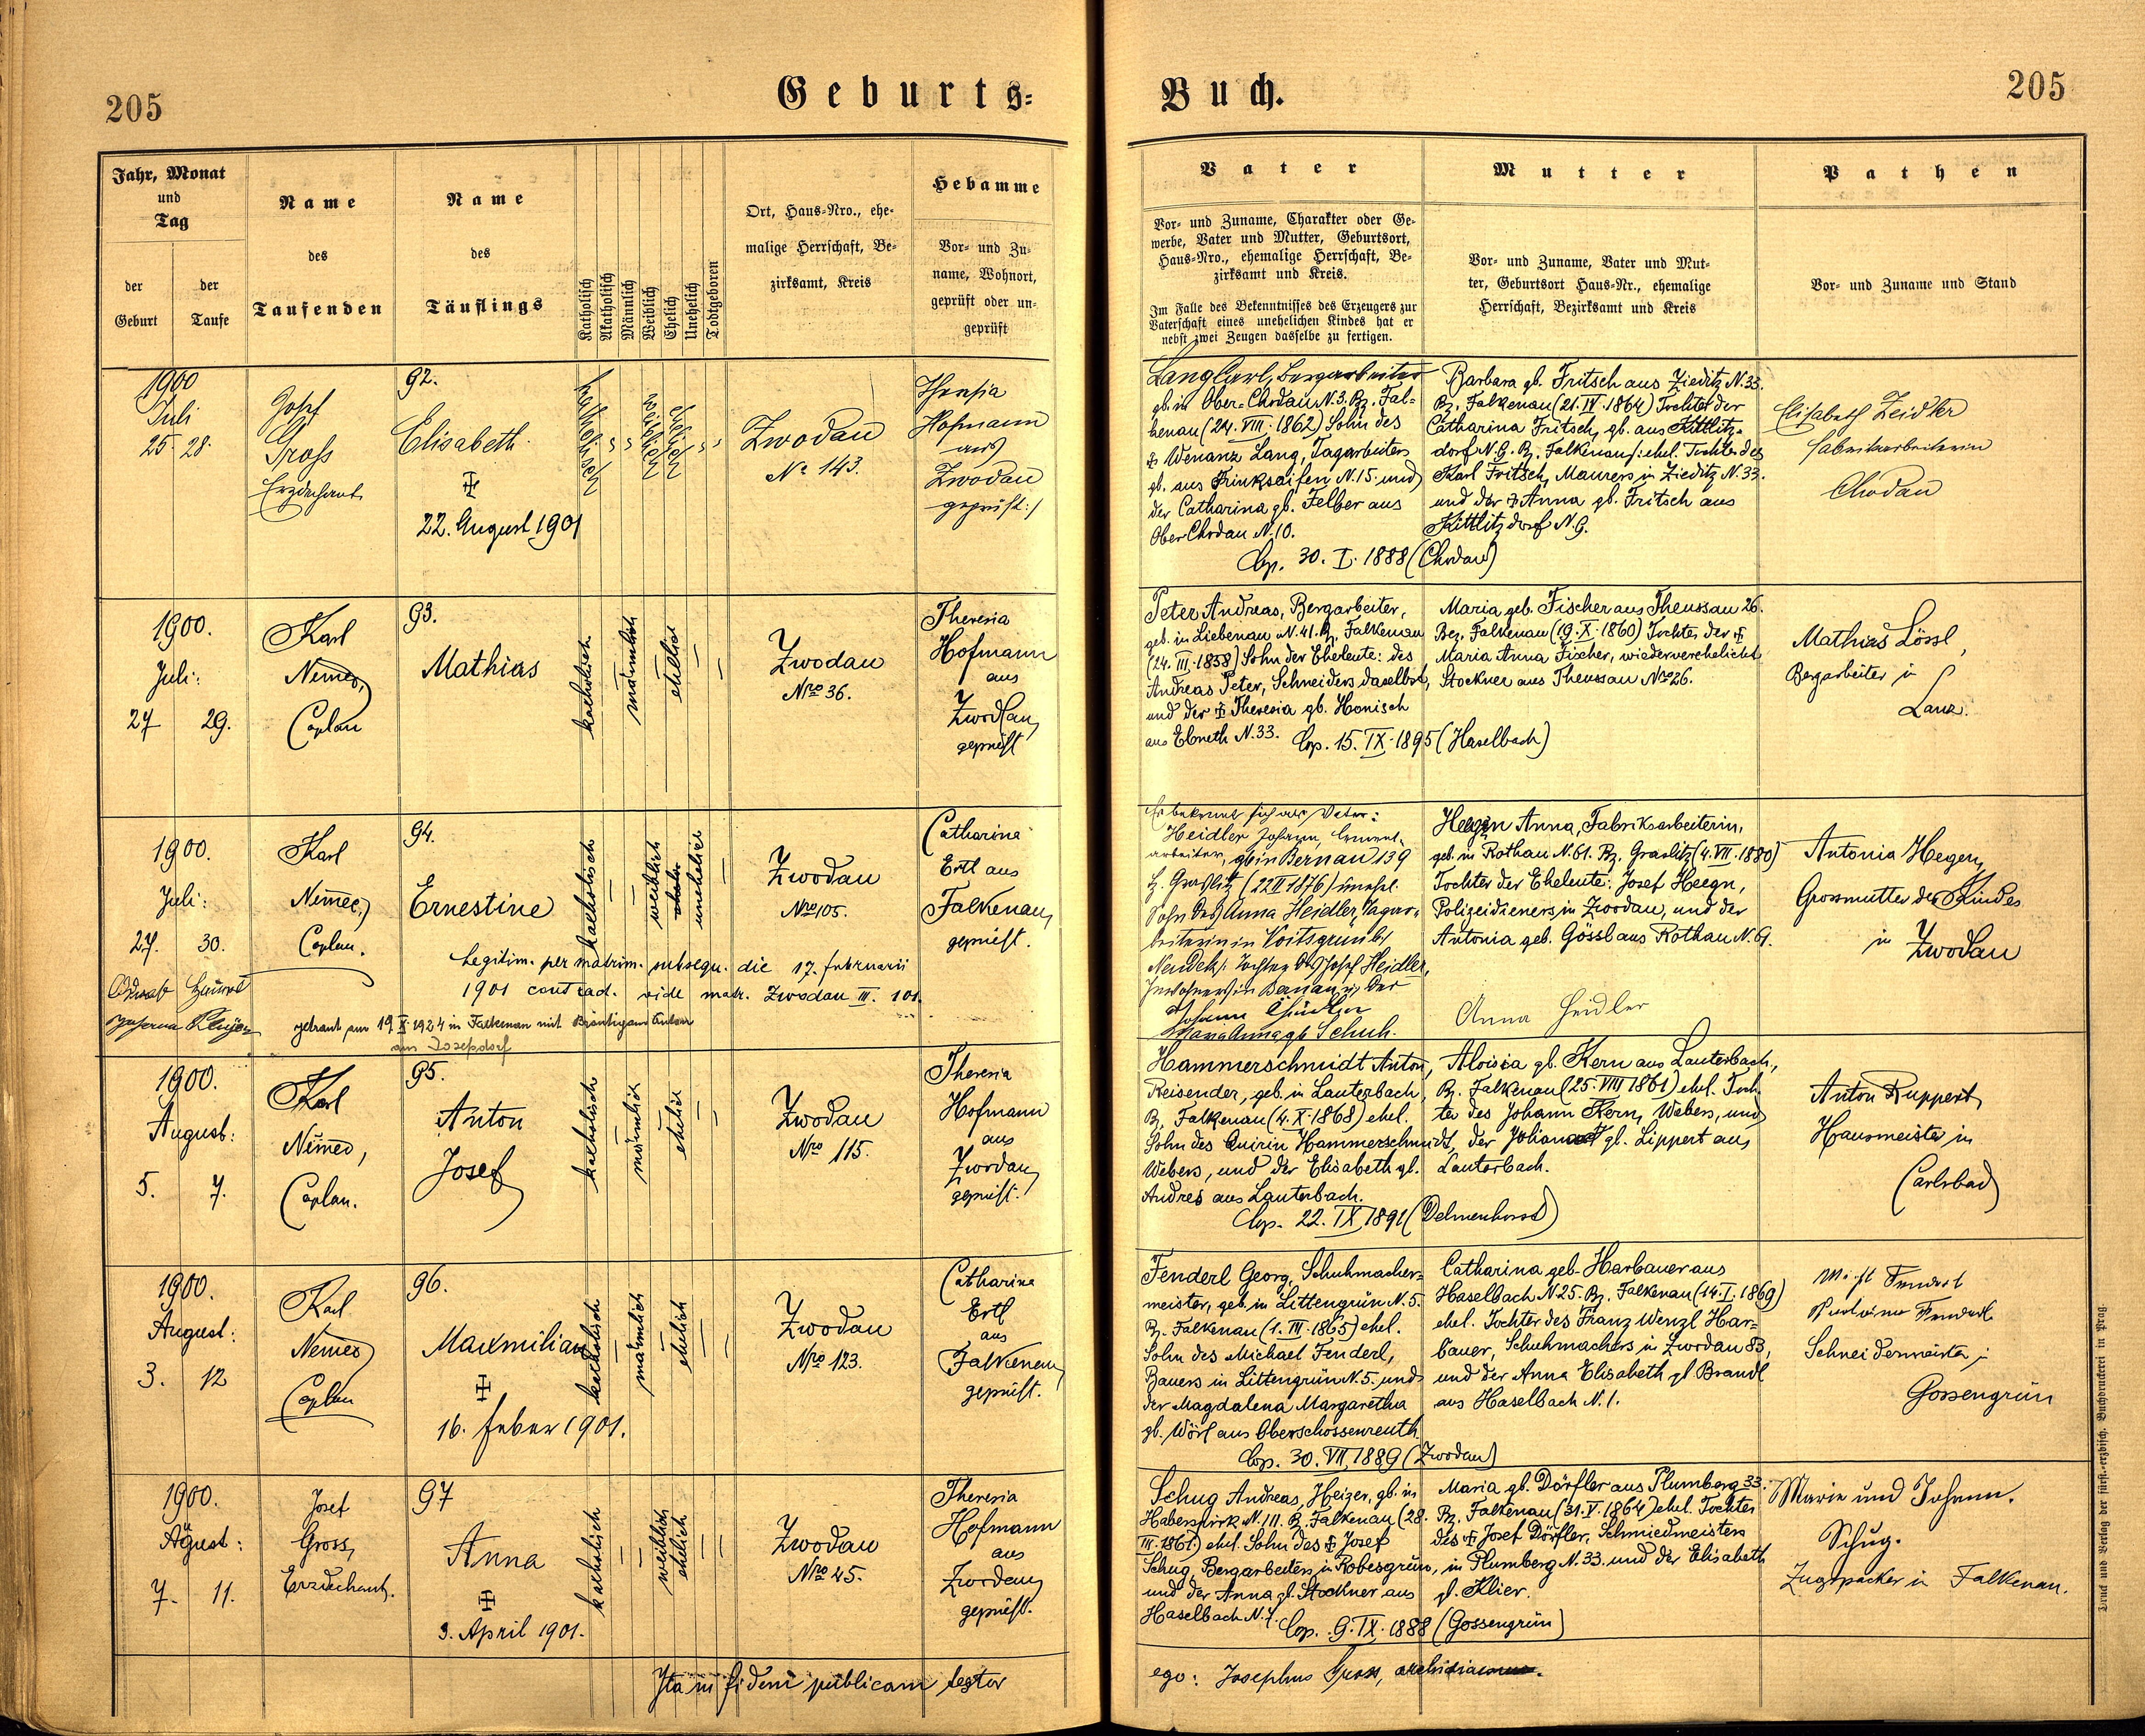 205
Geburts=
Buch.
205
Jahr, Monat
und
Tag
der
Geburt
der
Taufe
Name
des
Taufenden
Name
des
Täuflings
Katholisch
Akatholisch
Männlich
Weiblich
Ehelich
Unehelich
Todtgeboren
Ort, Haus=Nro., ehe=
malige Herrschaft, Be=
zirksamt, Kreis
Hebamme
Vor= und Zu=
name, Wohnort,
geprüft oder un=
geprüft
Vater
Vor= und Zuname, Charakter oder Ge=
werbe, Vater und Mutter, Geburtsort,
Haus=Nro., ehemalige Herrschaft, Be=
zirksamt und Kreis.
Im Falle des Bekenntnisses des Erzeugers zur
Vaterschaft eines unehelichen Kindes hat er
nebst zwei Zeugen dasselbe zu fertigen.
Mutter
Vor= und Zuname, Vater und Mut=
ter, Geburtsort Haus=Nr., ehemalige
Herrschaft, Bezirksamt und Kreis
Pathen
Vor= und Zuname und Stand
1900
Juli
25. 28.
Josef
Gross
Erzdechant
92.
Elisabeth
22. August 1901
katholisch
weiblich
ehelich
Zwodau
No 143.
Theresia
Hofmann
aus
Zwodau
geprüft :/
Lang Carl, Bergarbeiter
gb. in Ober=Chodau N. 3. Bz. Fal=
kenau (24. VIII. 1862) Sohn des
Wenanz Lang, Tagarbeiters
gb. aus Trinksaifen N. 15. und
der Catharina gb. Felber aus
Ober Chodau N. 10.
Cop. 30. I. 1888 (Chodau)
Barbara gb. Fritsch aus Zieditz N. 33.
Bz. Falkenau (21. IV. 1864) Tochter der
Catharina Fritsch, gb. aus Kittlitz=
dorf N. 9. Bz. Falkenau/: ehel. Tochter des
Karl Fritsch, Maurers in Zieditz N. 33.
und der Anna gb. Fritsch aus
Kittlitzdorf N. 9.
Elisabeth Zeidler
Fabriksarbeiterin
Chodau
1900.
Juli:
27 29.
Karl
Němec,
Caplan
93.
Mathias
katholisch
männlich
ehelich
Zwodau
Nro 36.
Theresia
Hofmann
aus
Zwodau,
geprüft
Peter Andreas, Bergarbeiter,
geb. in Liebenau N. 41. Bz. Falkenau
(24. III. 1858) Sohn der Eheleute: des
Andreas Peter, Schneiders daselbst,
und der Theresia gb. Honisch
aus Ebneth N. 33. Cop. 15. IX. 1895 (Haselbach)
Maria geb. Fischer aus Theussau 26.
Bez. Falkenau (19. X. 1860) Tochter der
Maria Anna Fischer, wiederverehelicht
Stockner aus Theussau Nro 26.
Mathias Lössl,
Bergarbeiter in
Lanz.
1900.
Juli:
27. 30.
Karl
Němec,
Caplan.
94.
Ernestine
katholisch
weiblich
unehelich
Zwodau
Nro 105.
Catharina
Ertl aus
Falkenau,
geprüft.
Legitim. per matrim. subsequ. die 17. februarii
1901 contract. vide matr. Zwodau III. 101.
getraut am 19 X 1924 in Falkenau mit Bräutigam Anton
aus Josefsdorf
Es bekennt sich als Vater:
Heidler Johann, Cement=
arbeiter, gb in Bernau 139
Bz. Graslitz (22 II 1876) unehel.
Sohn der Anna Heidler, Tagar=
beiterin in Voitsgrün Bz
Neudek/: Tochter des Josef Heidler,
Inwohners in Bernau u. der
Johann Heidler
Maria Anna gb Schuh.
Heegn Anna, Fabriksarbeiterin,
geb. in Rothau N. 61. Bz. Graslitz (4. VII. 1880)
Tochter der Eheleute: Josef Heegn,
Polizeidieners in Zwodau, und der
Antonia geb. Gössl aus Rothau N. 9.
Anna Heidler
Antonia Hegen,
Grossmutter des Kindes
in Zwodau
1900.
August:
5. 7.
Karl
Němec,
Caplan.
95.
Anton
Josef
katholisch
männlich
ehelich
Zwodau
Nro 115.
Theresia
Hofmann
aus
Zwodau,
geprüft.
Hammerschmidt Anton,
Reisender, geb. in Lauterbach,
Bz. Falkenau (4. X. 1868) ehel.
Sohn des Quirin Hammerschmidt,
Webers, und der Elisabeth gb.
Andres aus Lauterbach.
Cop. 22. IX 1891 (Delmenhorst)
Aloisia gb. Kern aus Lauterbach,
Bz. Falkenau (25. VIII 1861) ehel. Toch=
ter des Johann Kern, Webers, und
der Johanna gb. Lippert aus
Lauterbach.
Anton Ruppert,
Hausmeister in
Carlsbad
1900.
August:
3. 12
Karl
Němec
Caplan
96.
Maxmilian
16. Feber 1901.
katholisch
männlich
ehelich
Zwodau
Nro 123.
Catharina
Ertl
aus
Falkenau,
geprüft.
Fenderl Georg, Schuhmacher=
meister, geb. in Littengrün N. 5.
Bz. Falkenau (1. III. 1865) ehel.
Sohn des Michael Fenderl,
Bauers in Littengrün N. 5. und
der Magdalena Margaretha
gb. Wörl aus Oberschossenreuth
Cop. 30. VII 1889 (Zwodau)
Catharina geb. Harbauer aus
Haselbach N 25. Bz. Falkenau (14. I. 1869)
ehel. Tochter des Franz Wenzl Har=
bauer, Schuhmachers in Zwodau 83,
und der Anna Elisabeth gb Brandl
aus Haselbach N. 1.
Schneidermeister in
Gossengrün
1900.
August:
7. 11.
Josef
Gross,
Erzdechant.
97
Anna
3. April 1901.
katholisch
weiblich
ehelich
Zwodau
Nro 45.
Theresia
Hofmann
aus
Zwodau,
geprüft.
Schug Andreas, Heizer, gb. in
Haberspirk N. 111. Bz. Falkenau (28.
III. 1861.) ehel. Sohn des Josef
Schug, Bergarbeiters in Robesgrün,
und der Anna gb. Stockner aus
Haselbach N. 7. Cop. 9. IX. 1888 (Gossengrün)
Maria gb. Dörfler aus Plumberg 33.
Bz. Falkenau (31. V. 1864) ehel. Tochter
des Josef Dörfler, Schmiedmeisters
in Plumberg N. 33. und der Elisabeth
gb. Klier.
Marie und Johann.
Schug.
Zugspacker in Falkenau.
Ita in fidem publicam testor
ego: Josephus Gross, archidiaconus.
Druck und Verlag der fürst.=erzbisch. Buchdruckerei in Prag.